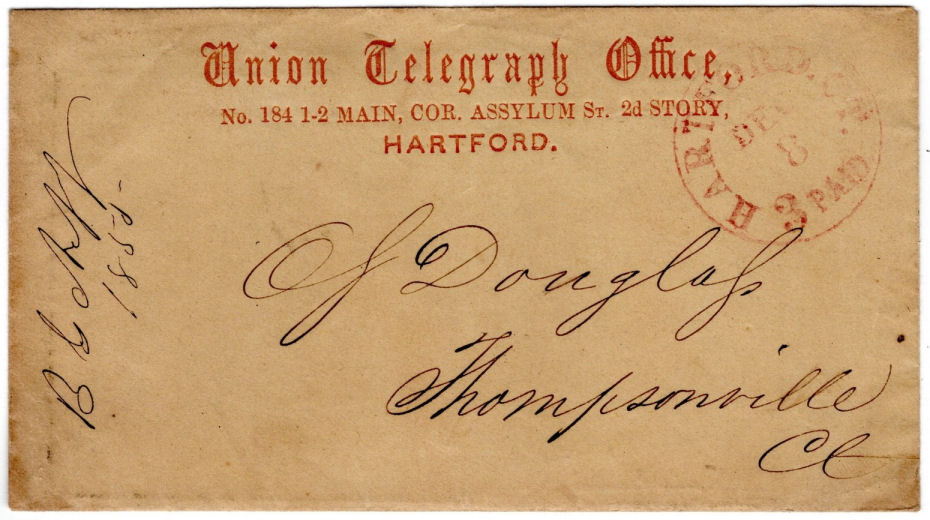 Union Telegraph Office,
No. 184 1-2 MAIN, COR. ASSYLUM St. 2d STORY,
HARTFORD.
HARTFORD. CT.
DEC
8
3 PAID
J Douglass
Thompsonville
Ct
1855